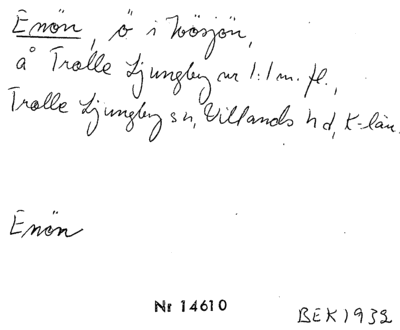 Enön, ö i Ivösjön,
å Trolle Ljungby nr 1:1 m. fl.,
Trolle Ljungby sn, Villands hd, K-län.
Enön
Nr 14610
BEK 1932